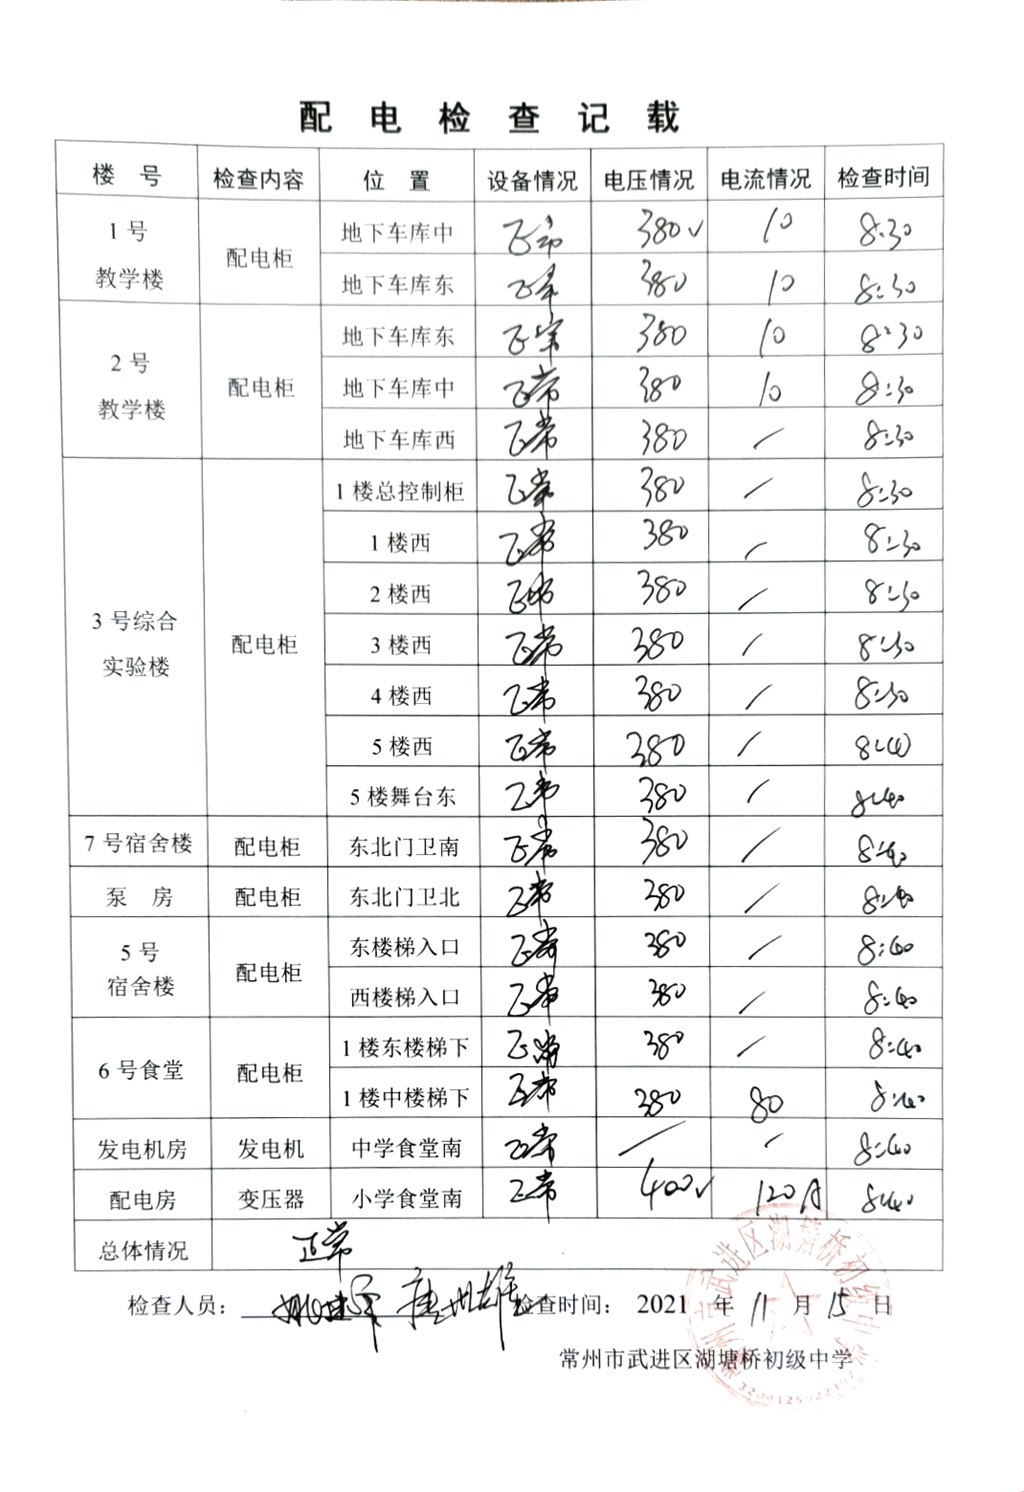 配 电 检 查 记 载
楼 号 检查内容 位 置 设备情况 电压情况 电流情况 检查时间
1 号 教学楼 配电柜 地下车库中 正常 380V 10 8:30
地下车库东 正常 380 10 8:30
2 号 教学楼 配电柜 地下车库东 正常 380 10 8:30
地下车库中 正常 380 10 8:30
地下车库西 正常 380 / 8:30
3 号综合 实验楼 配电柜 1 楼总控制柜 正常 380 / 8:30
1 楼西 正常 380 / 8:30
2 楼西 正常 380 / 8:30
3 楼西 正常 380 / 8:30
4 楼西 正常 380 / 8:30
5 楼西 正常 380 / 8:40
5 楼舞台东 正常 380 / 8:40
7 号宿舍楼 配电柜 东北门卫南 正常 380 / 8:40
泵 房 配电柜 东北门卫北 正常 380 / 8:40
5 号 宿舍楼 配电柜 东楼梯入口 正常 380 / 8:40
西楼梯入口 正常 380 / 8:40
6 号食堂 配电柜 1 楼东楼梯下 正常 380 / 8:40
1 楼中楼梯下 正常 380 80 8:40
发电机房 发电机 中学食堂南 正常 / / 8:40
配电房 变压器 小学食堂南 正常 400V 120A 8:40
总体情况 正常
检查人员： 检查时间： 2021 年 11 月 15 日
常州市武进区湖塘桥初级中学